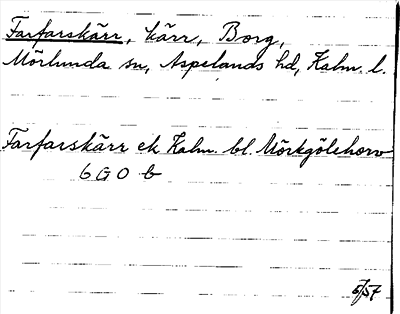 Farfarskärr, kärr, Borg,
Mörlunda sn, Aspelands hd, Kalm. l.
Farfarskärr ek Kalm. bl. Mörkgölehorv
6 G 0 b
5/57